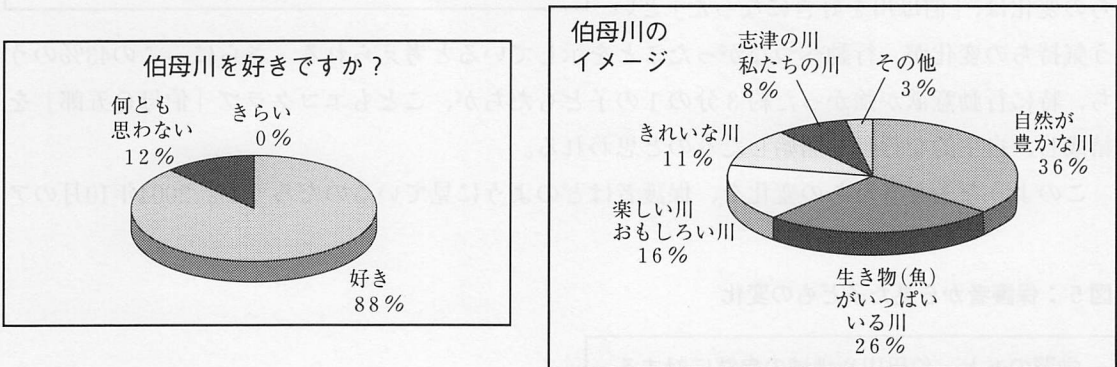 伯母川を好きですか？
何とも
思わない
12％
きらい
0％
好き
88％
伯母川の
イメージ
志津の川
私たちの川
8％
その他
3％
自然が
豊かな川
36％
きれいな川
11％
楽しい川
おもしろい川
16％
生き物(魚)
がいっぱい
いる川
26％